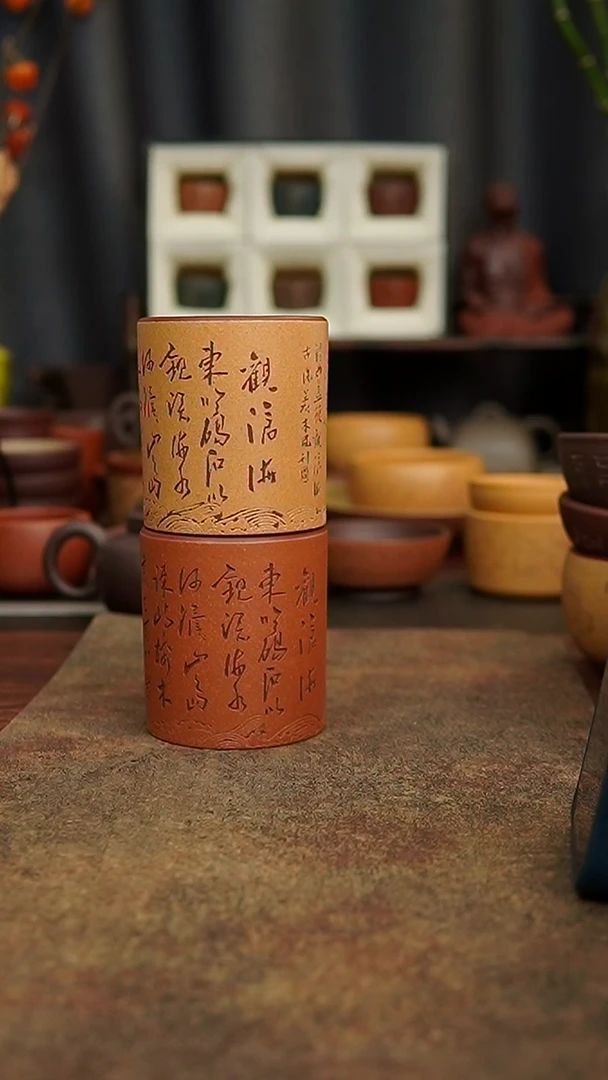 觀滄海
東臨碣石以
觀滄海水
何澹々山島
觀滄海
東臨碣石以
觀滄海水
何澹々山島
竦峙樹木